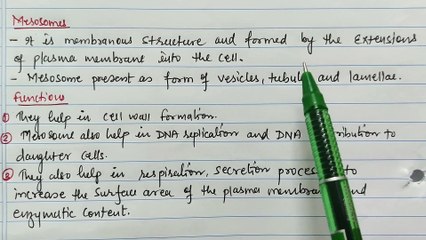 Mesosomes
- It is membranous structure and formed by the extensions
of plasma membrant into the cell.
- Mesosome present as form of vesicles, tubul and lamellae.
Functions
① They help in cell wall formation.
② Mesosome also help in DNA replication and DNA tribution to
daughter cells.
③ They also help in respiration, secretion process to
increase the surface area of the plasma membran and
enzymatic content.